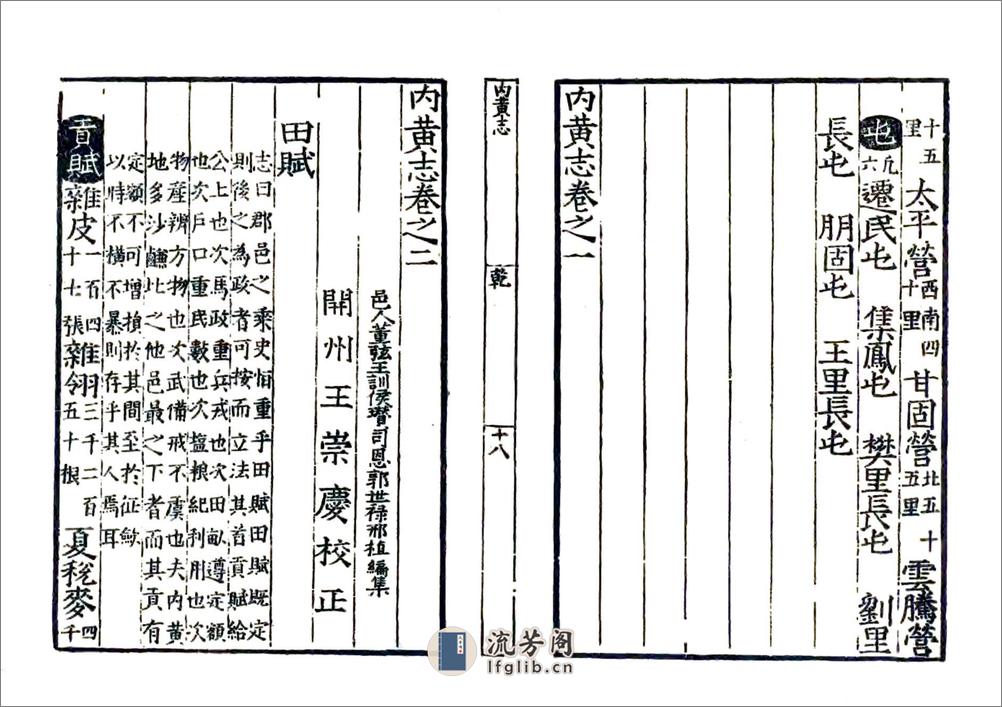 十五里太平營西南四十里甘固營北五十五里雲騰營
屯凡六遷民屯 集鳳屯 樊里長屯 劉里
長屯 朋固屯 王里長屯
内黄志卷之一
内黄志 乾 十八
内黄志卷之二
邑人董弦王訓侯瓚司恩郭世祿邢植編集
開州王崇慶校正
田賦
志曰郡邑之乘史恒重乎田賦田賦既定
則後之為政者可按而立法其首貢賦給
公上也次馬政重兵戎也次田畝遵定額
也次戶口重民數也次塩粮紀利用也次
物產辨方物也次武備戒不虞也夫内黄
地多沙鹻比之他邑最之下者而其貢有
定額不可增損於其間至於征斂
以時不橫不暴則存乎其人焉耳
貢賦雜皮一百四十七張雜翎三千二百五十根夏稅麥四千
流芳阁
lfglib.cn